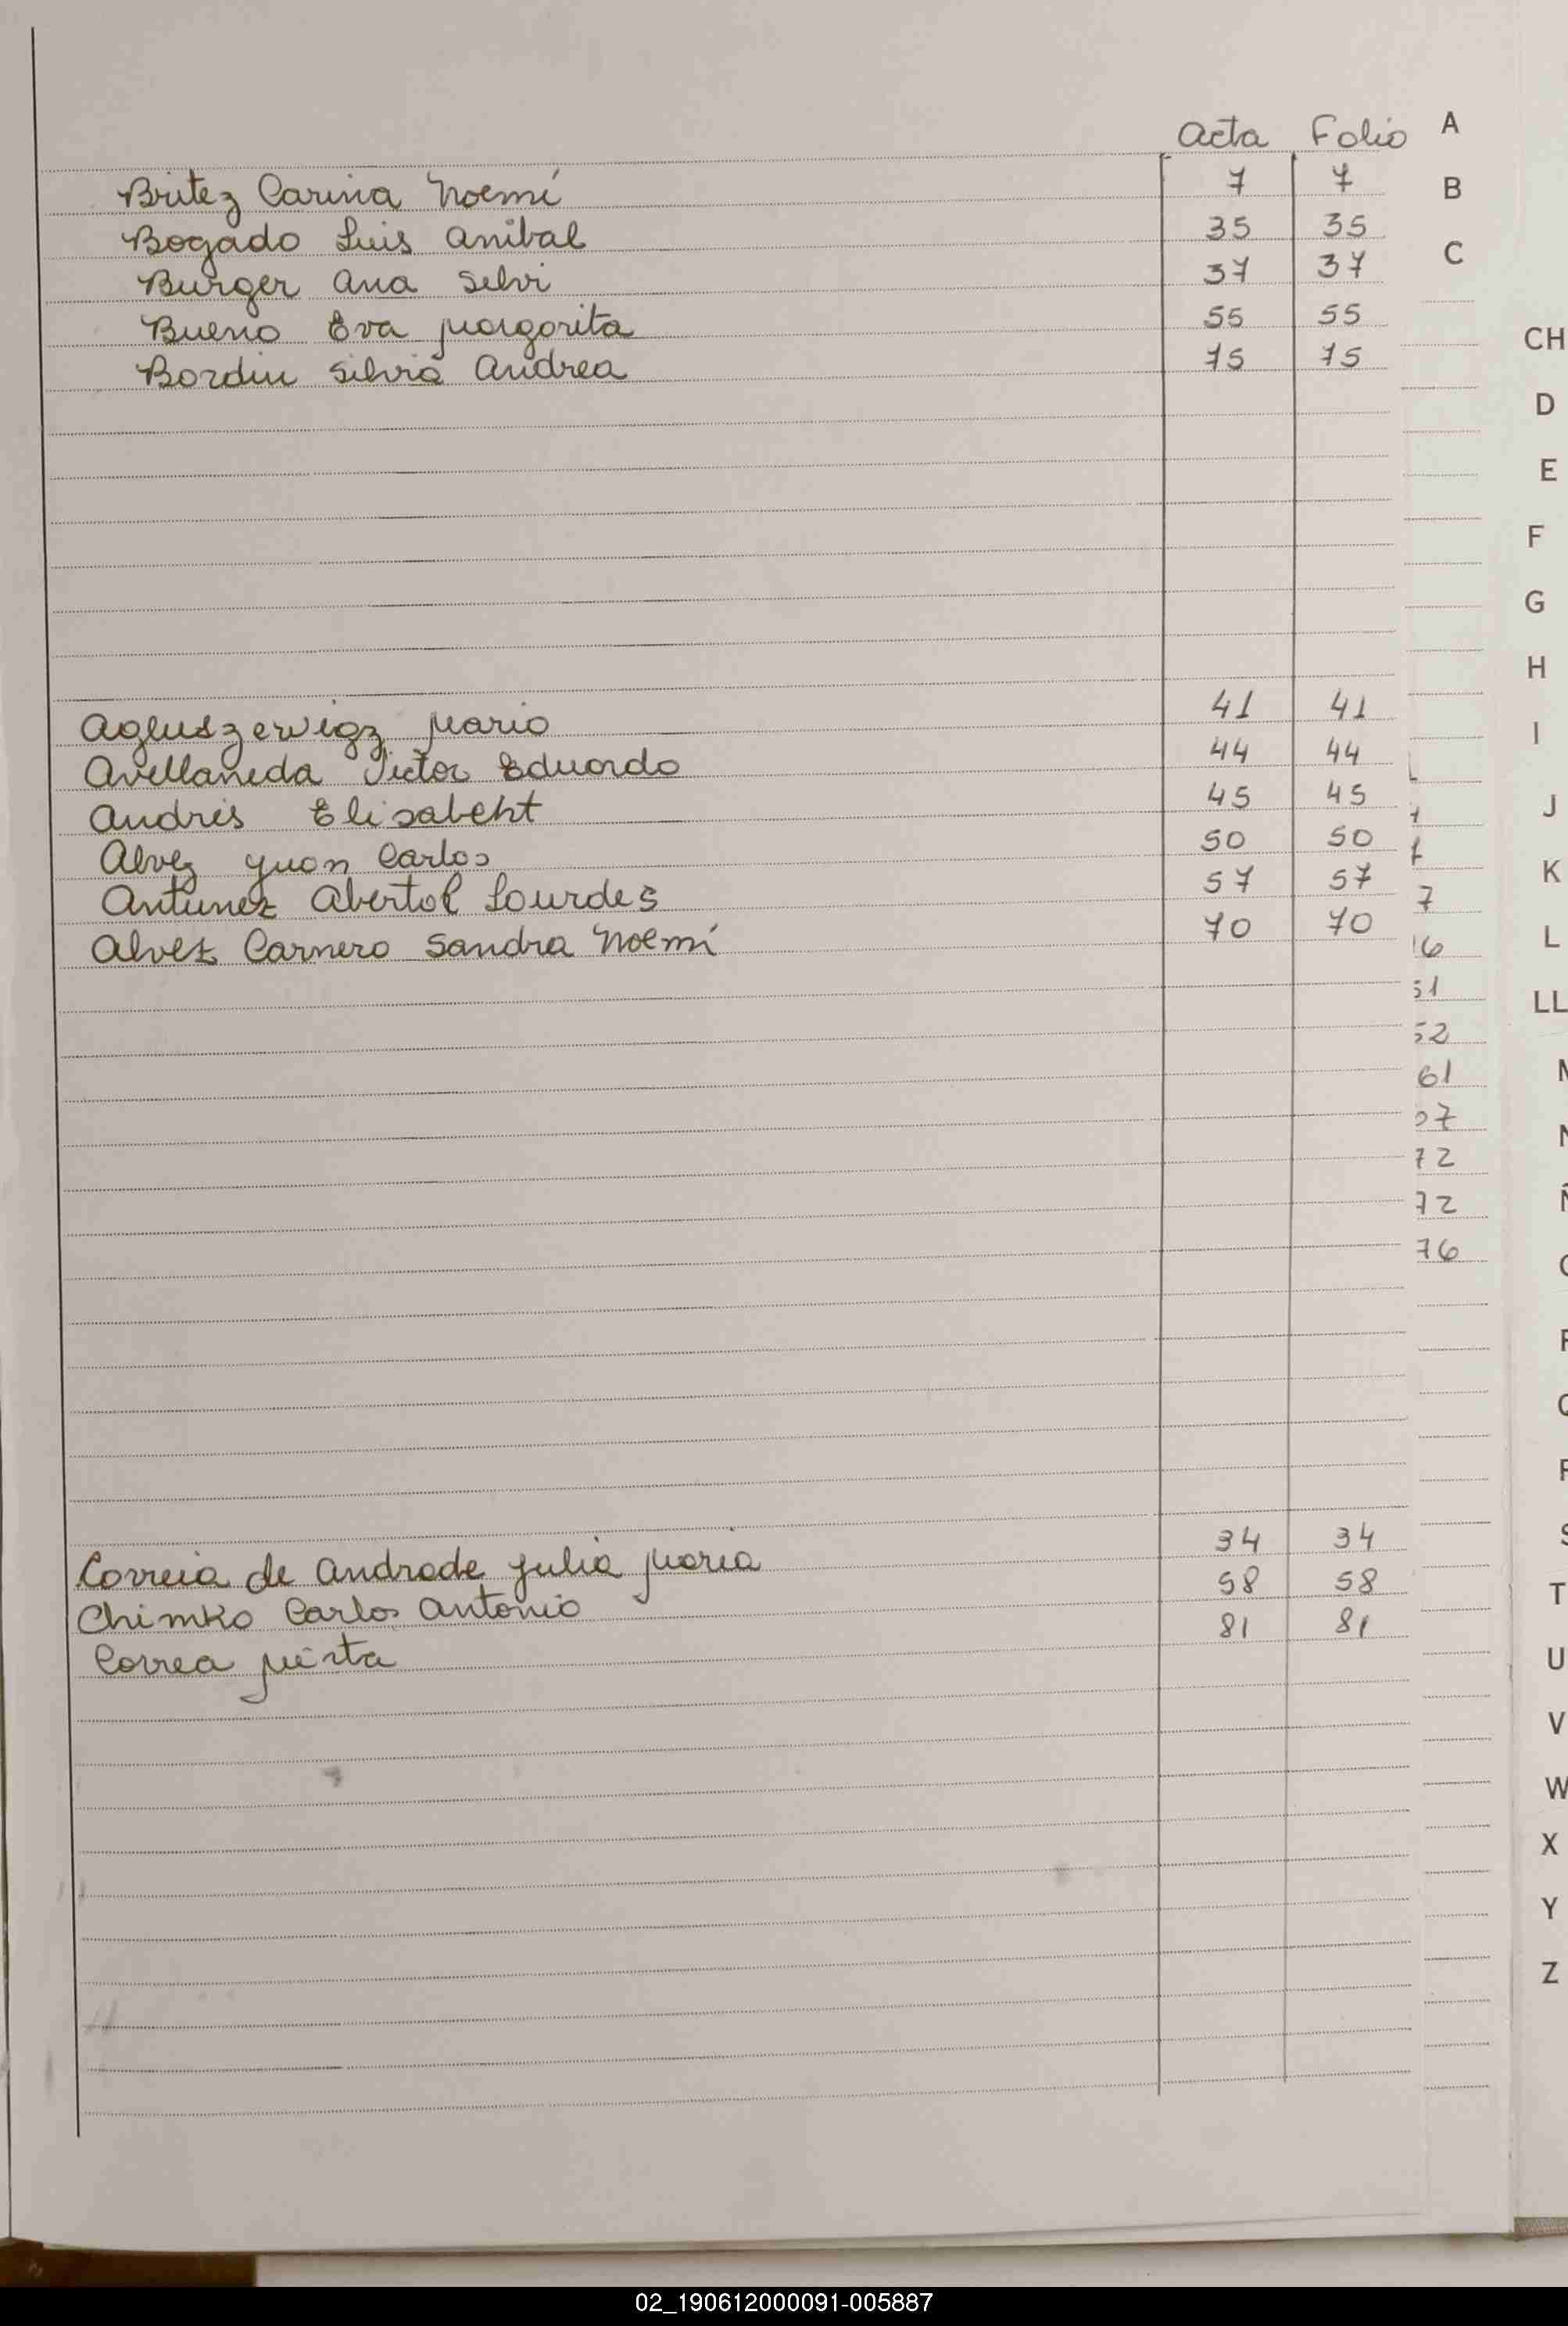 Acta Folio A
Britez Carina Noemí 7 7 B
Bogado Luis Anibal 35 35
Burger Ana Silvi 37 37 C
Bueno Eva Margarita 55 55
Bordin Silvia Andrea 75 75
CH
D
E
F
G
H
Agluszewigz Mario 41 41
I
Avellaneda Victor Eduardo 44 44
Andris Elisabeht 45 45
J
Alvez Juan Carlos 50 50
Antunez Abertol Lourdes 57 57 7
K
Alvez Carnero Sandra Noemí 70 70 16
L
51
LL
52
61
67
72
72
76
Correia de Andrade Julia Maria 34 34
Chimko Carlos Antonio 58 58
T
Correa Mirta 81 81
U
V
W
X
Y
Z
02_190612000091-005887